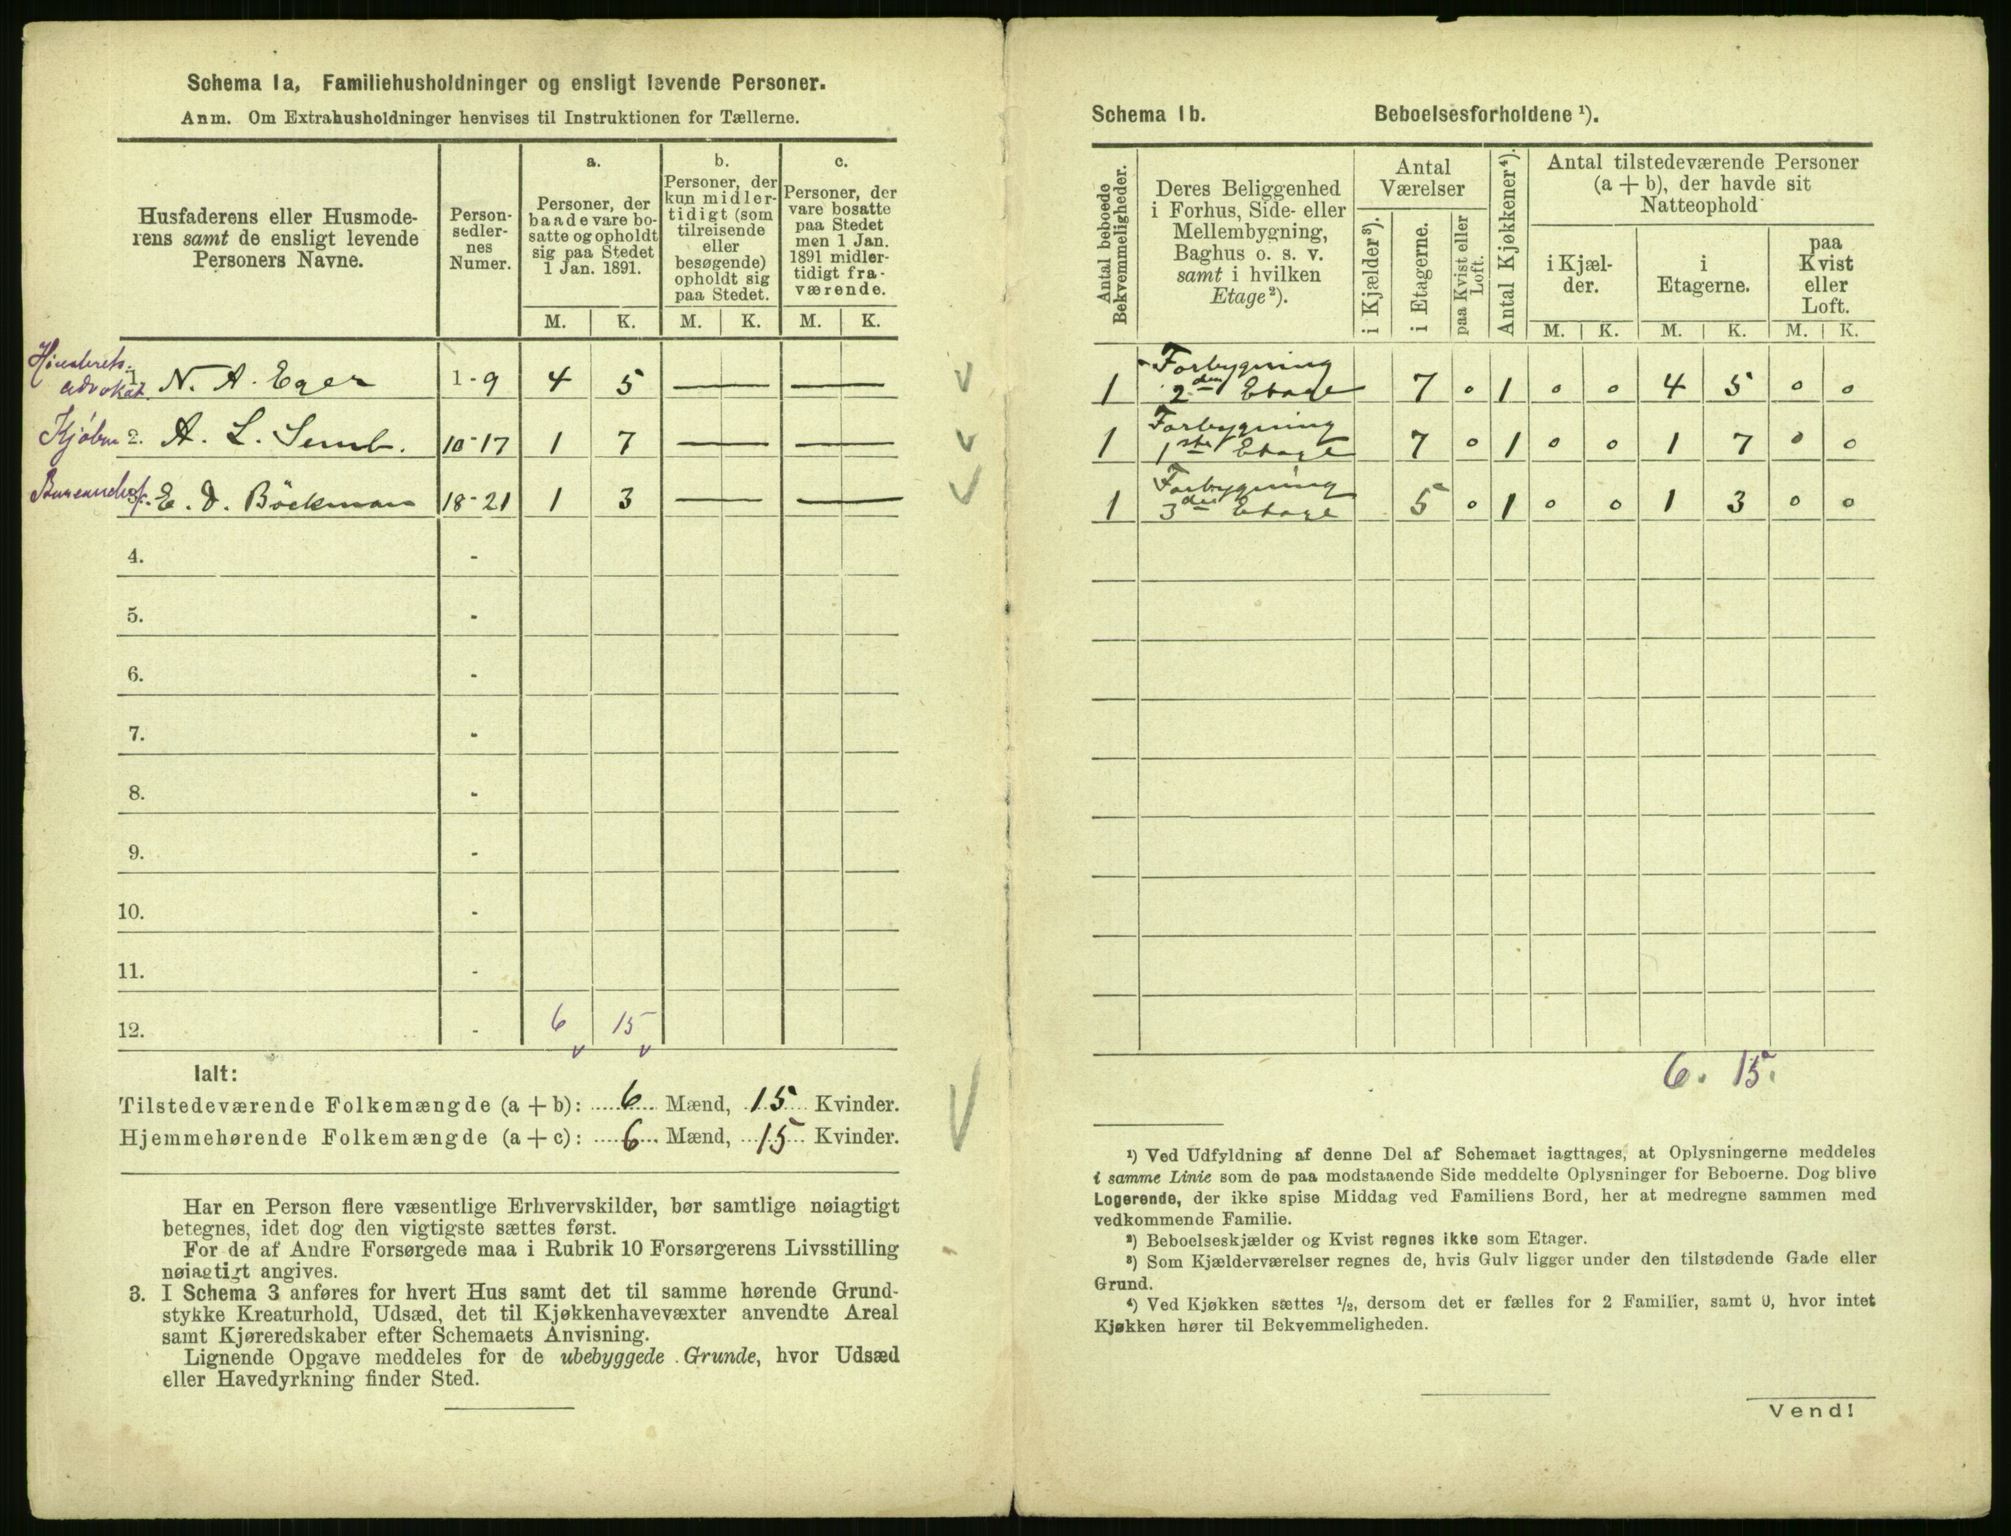 Schema 1a, Familiehusholdninger og ensligt levende Personer.
Anm. Om Extrahusholdninger henvises til Instruktionen for Tællerne.
Husfaderens eller Husmode-
rens samt de ensligt levende
Personers Navne.
Person-
sedler-
nes
Numer.
a.
Personer, der
baade vare bo-
satte og opholdt
sig paa Stedet
1 Jan. 1891.
b.
Personer, der
kun midler-
tidigt (som
tilreisende
eller
besøgende)
opholdt sig
paa Stedet.
c.
Personer, der
vare bosatte
paa Stedet
men 1 Jan.
1891 midler-
tidigt fra-
værende.
M. K. M. K. M. K.
Høiesterets-
advokat. 1. N. A. Eger 1-9 4 5 — —
Kjøbm 2. A. L. Semb. 10-17 1 7 — —
Bureauchef. E. D. Böckman 18-21 1 3 — —
4. -
5. -
6. -
7. -
8. -
9. -
10. -
11. -
12. - 6 15
Ialt:
Tilstedeværende Folkemængde (a + b): 6 Mænd, 15 Kvinder.
Hjemmehørende Folkemængde (a + c): 6 Mænd, 15 Kvinder.
Har en Person flere væsentlige Erhvervskilder, bør samtlige nøiagtigt
betegnes, idet dog den vigtigste sættes først.
For de af Andre Forsørgede maa i Rubrik 10 Forsørgerens Livsstilling
nøiagtigt angives.
3. I Schema 3 anføres for hvert Hus samt det til samme hørende Grund-
stykke Kreaturhold, Udsæd, det til Kjøkkenhavevæxter anvendte Areal
samt Kjøreredskaber efter Schemaets Anvisning.
Lignende Opgave meddeles for de ubebyggede Grunde, hvor Udsæd
eller Havedyrkning finder Sted.
Schema 1b. Beboelsesforholdene ¹).
Antal beboede
Bekvemmeligheder.
Deres Beliggenhed
i Forhus, Side- eller
Mellembygning,
Baghus o. s. v.
samt i hvilken
Etage ²).
Antal
Værelser
i Kjælder ³).
i Etagerne.
paa Kvist eller
Loft.
Antal Kjøkkener ⁴).
Antal tilstedeværende Personer
(a + b), der havde sit
Natteophold
i Kjæl-
der.
i
Etagerne.
paa
Kvist
eller
Loft.
M. K. M. K. M. K.
Forbygning
1 2den Etage 7 0 1 0 0 4 5 0 0
Forbygning
1 1ste Etage 7 0 1 0 0 1 7 0 0
Forbygning
1 3die Etage 5 0 1 0 0 1 3 0 0
6. 15.
¹) Ved Udfyldning af denne Del af Schemaet iagttages, at Oplysningerne meddeles
i samme Linie som de paa modstaaende Side meddelte Oplysninger for Beboerne. Dog blive
Logerende, der ikke spise Middag ved Familiens Bord, her at medregne sammen med
vedkommende Familie.
²) Beboelseskjælder og Kvist regnes ikke som Etager.
³) Som Kjælderværelser regnes de, hvis Gulv ligger under den tilstødende Gade eller
Grund.
⁴) Ved Kjøkken sættes ½, dersom det er fælles for 2 Familier, samt 0, hvor intet
Kjøkken hører til Bekvemmeligheden.
Vend!